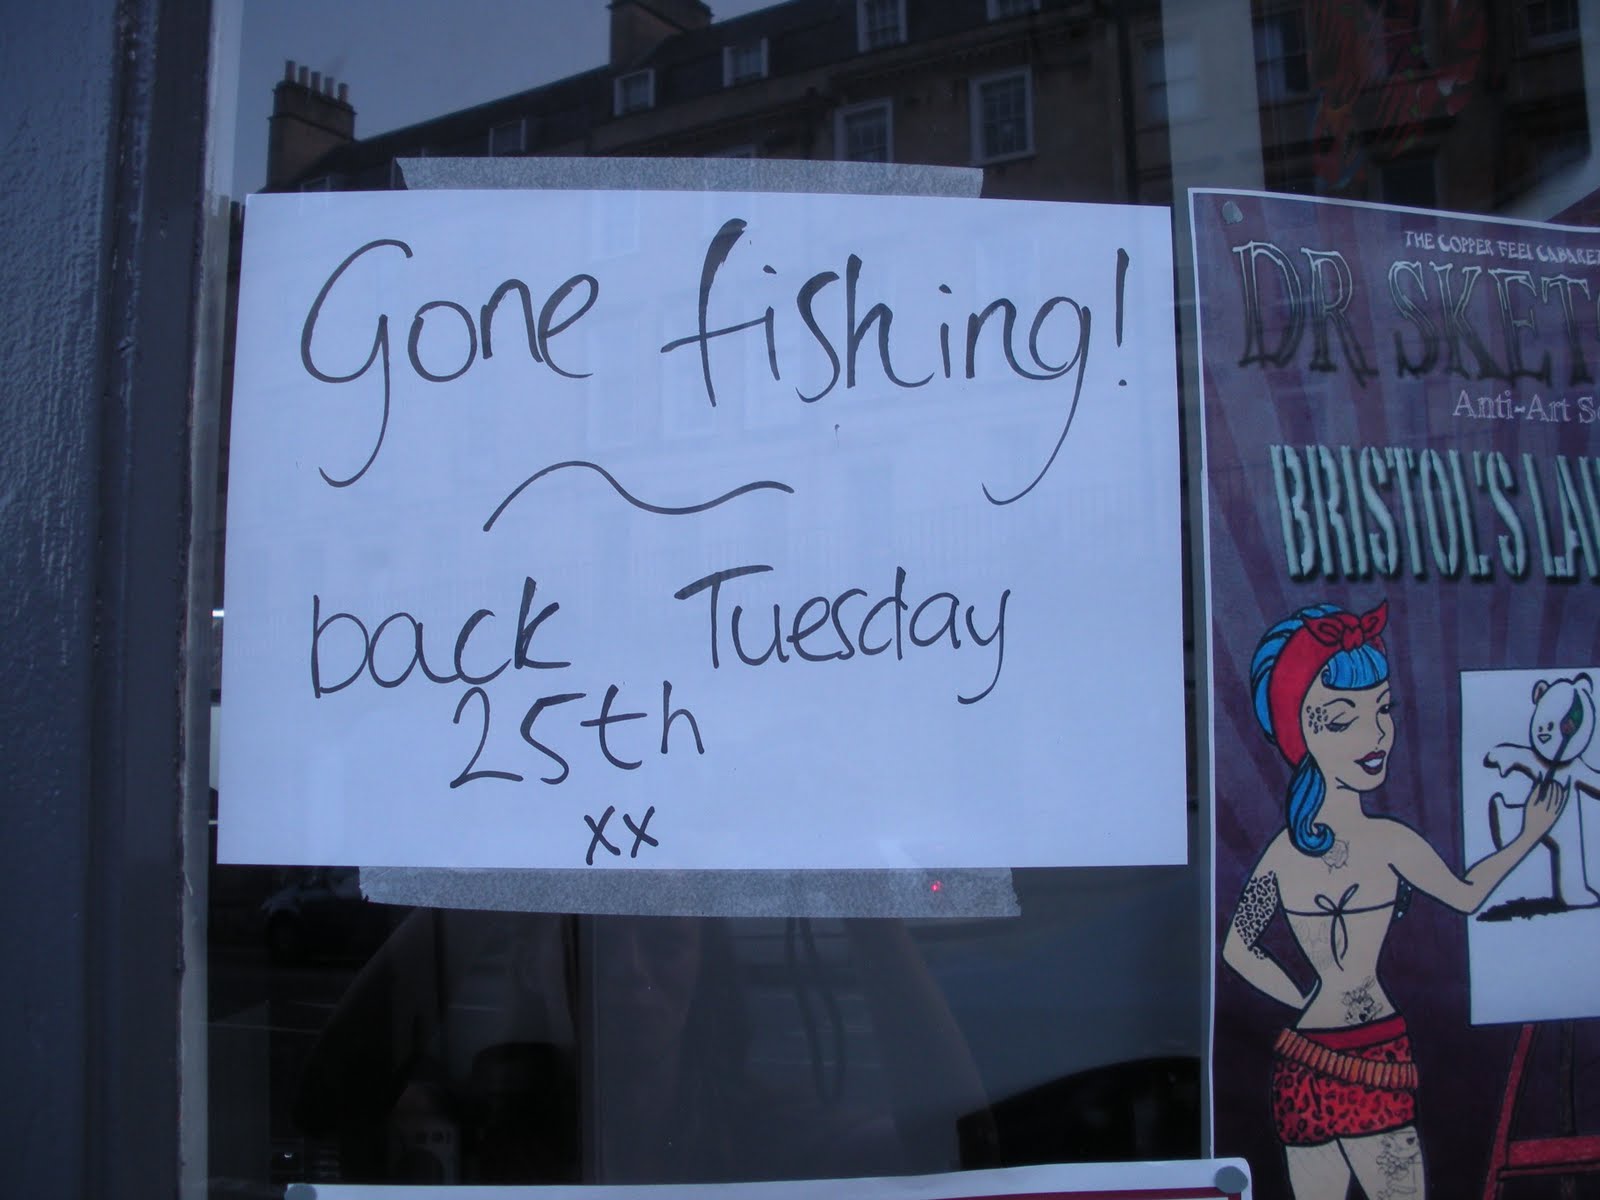 Gone fishing!
back Tuesday
25th
xx
THE COPPER FEEL CABARET
DR
Anti-Art
BRISTOL'S